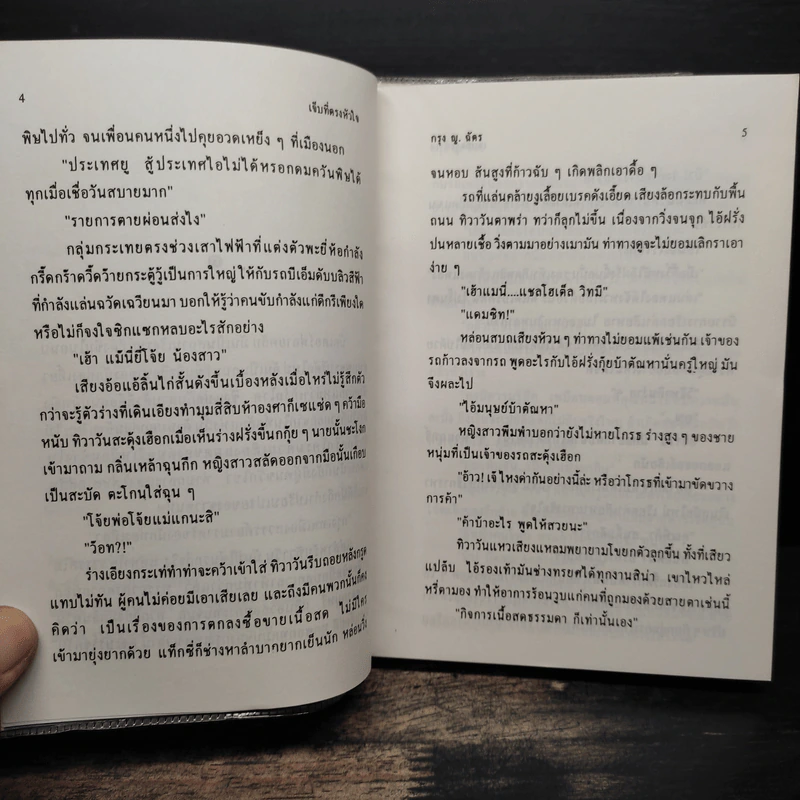 4
เจ็บที่ตรงหัวใจ
พิษไปทั่ว จนเพื่อนคนหนึ่งไปคุยอวดเหยิง ๆ ที่เมืองนอก
"ประเทศยู สู้ประเทศไอไม่ได้หรอกดมควันพิษได้
ทุกเมื่อเชื่อวันสบายมาก"
"รายการตายผ่อนส่งไง"
กลุ่มกระเทยตรงช่วงเสาไฟฟ้าที่แต่งตัวพะยี่ห้อกำลัง
กรี๊ดกร๊าดวี้ดว้ายกระตู้วู้เป็นการใหญ่ ให้กับรถบีเอ็มดับบลิวสีฟ้า
ที่กำลังแล่นฉวัดเฉวียนมา บอกให้รู้ว่าคนขับกำลังแก่ดีกรีเพียงใด
หรือไม่ก็จงใจซิกแซกหลบอะไรสักอย่าง
"เฮ้า แม๊นี่ยี่โจ้ย น้องสาว"
เสียงอ้อแอ้ลิ้นไก่สั้นดังขึ้นเบื้องหลังเมื่อไหร่ไม่รู้สึกตัว
กว่าจะรู้ตัวร่างที่เดินเอียงทำมุมสี่สิบห้าองศาก็เซแซ่ด ๆ คว้ามือ
หนับ ทิวาวันสะดุ้งเฮือกเมื่อเห็นร่างฝรั่งขี้นกกุ๊ย ๆ นายนั้นชะโงก
เข้ามาถาม กลิ่นเหล้าฉุนกึก หญิงสาวสลัดออกจากมือนั้นเกือบ
เป็นสะบัด ตะโกนใส่ฉุน ๆ
"โจ้ยพ่อโจ้ยแม่แกนะสิ"
"ว๊อท?!"
ร่างเอียงกระเท่ทำท่าจะคว้าเข้าใส่ ทิวาวันรีบถอยหลังกรูด
แทบไม่ทัน ผู้คนไม่ค่อยมีเอาเสียเลย และถึงมีคนพวกนั้นก็คง
คิดว่า เป็นเรื่องของการตกลงซื้อขายเนื้อสด ไม่มีใคร
เข้ามายุ่งยากด้วย แท็กซี่ก็ช่างหาลำบากยากเย็นนัก หล่อนวิ่ง
กรุง ญ. ฉัตร
5
จนหอบ ส้นสูงที่ก้าวฉับ ๆ เกิดพลิกเอาดื้อ ๆ
รถที่แล่นคล้ายงูเลื้อยเบรคดังเอี๊ยด เสียงล้อกระทบกับพื้น
ถนน ทิวาวันตาพร่า ทว่าก็ลุกไม่ขึ้น เนื่องจากวิ่งจนจุก ไอ้ฝรั่ง
ปนหลายเชื้อ วิ่งตามมาอย่างเมามัน ท่าทางดูจะไม่ยอมเลิกราเอา
ง่าย ๆ
"เฮ้าแมนี่....แชลโฮเต็ล วิทมี"
"แดมชิท!"
หล่อนสบถเสียงห้วน ๆ ท่าทางไม่ยอมแพ้เช่นกัน เจ้าของ
รถก้าวลงจากรถ พูดอะไรกับไอ้ฝรั่งกุ๊ยบ้าตัณหานั่นครู่ใหญ่ มัน
จึงผละไป
"ไอ้มนุษย์บ้าตัณหา"
หญิงสาวพึมพำบอกว่ายังไม่หายโกรธ ร่างสูง ๆ ของชาย
หนุ่มที่เป็นเจ้าของรถสะดุ้งเฮือก
"อ้าว! เจ้ ไหงด่ากันอย่างนี้ล่ะ หรือว่าโกรธที่เข้ามาขัดขวาง
การค้า"
"ค้าบ้าอะไร พูดให้สวยนะ"
ทิวาวันแหวเสียงแหลมพยายามโขยกตัวลุกขึ้น ทั้งที่เสียว
แปล๊บ ไอ้รองเท้ามันช่างทรยศได้ทุกงานสิน่า เขาไหวไหล่
หรี่ตามอง ทำให้อาการร้อนวูบแก่คนที่ถูกมองด้วยสายตาเช่นนี้
"กิจการเนื้อสดธรรมดา ก็เท่านั้นเอง"